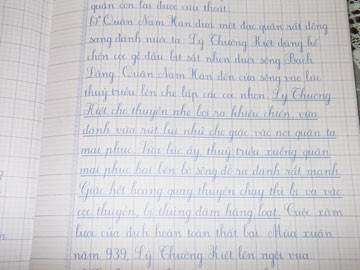 quân còn lại được cứu thoát.
b) Quân Nam Hán đưa một đạo quân rất đông
sang đánh nước ta. Lý Thường Kiệt dùng kế
chôn cọc gỗ đầu bịt sắt nhọn dưới sông Bạch
Đằng. Quân Nam Hán đến cửa sông vào lúc
thuỷ triều lên che lấp các cọc nhọn. Lý Thường
Kiệt cho thuyền nhẹ bơi ra khiêu chiến, vừa
đánh vừa rút lui nhử cho giặc vào nơi quân ta
mai phục. Vừa lúc ấy thuỷ triều xuống quân
mai phục hai bên bờ sông đổ ra đánh rất mạnh.
Giặc hốt hoảng quay thuyền chạy thì bị va vào
cọc, thuyền bị thủng đắm hàng loạt. Cuộc xâm
lược của địch hoàn toàn thất bại. Mùa xuân
năm 939, Lý Thường Kiệt lên ngôi vua.